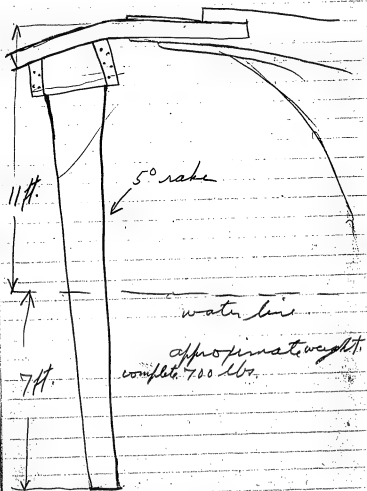 5° rake
11 ft.
water line
approximate weight.
complete 700 lbs.
7 ft.